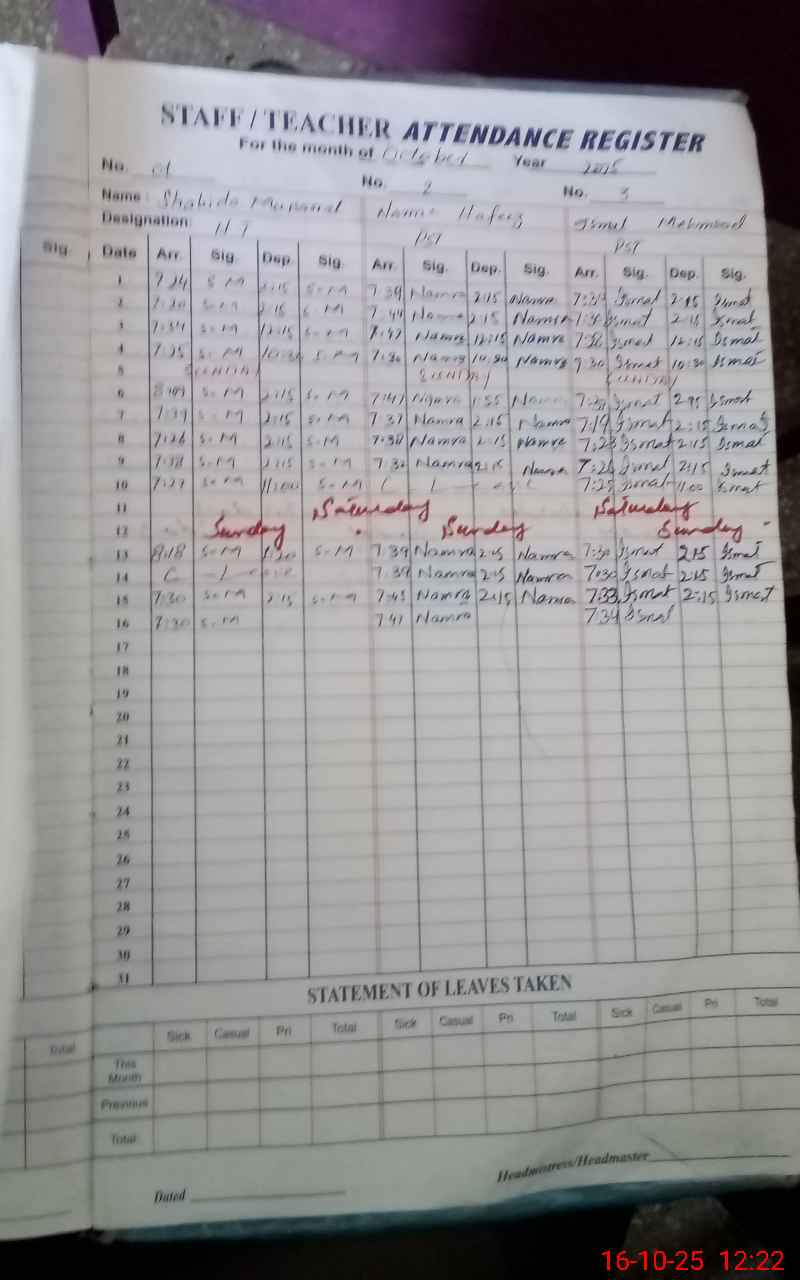 STAFF / TEACHER ATTENDANCE REGISTER
For the month of October Year 2025
No. 01 No. 2 No. 3
Name: Shahida Namra Hafeez Ismat Mehmood
Designation: HT PST PST
Sig. Date Arr. Sig. Dep. Sig. Arr. Sig. Dep. Sig. Arr. Sig. Dep. Sig.
1 7:24 S-M 2:15 S-M 7:39 Namra 2:15 Namra Ismat 2:15 Ismat
2 S-M 2:15 S-M 7:44 Namra 2:15 Namra Ismat 2:15 Ismat
3 S-M 12:15 S-M 7:42 Namra 12:15 Namra Ismat 12:15 Ismat
4 7:25 S-M 10:30 S-M 7:30 Namra 10:30 Namra 7:30 Ismat 10:30 Ismat
5 SUNDAY SUNDAY SUNDAY
6 S-M 2:15 S-M 7:41 Namra 1:55 Namra Ismat Ismat
7 7:39 S-M 2:15 S-M 7:37 Namra 2:15 Namra 7:19 Ismat 2:15 Ismat
8 7:26 S-M 2:15 S-M 7:38 Namra 2:15 Namra 7:23 Ismat 2:15 Ismat
9 7:38 S-M 2:15 S-M 7:32 Namra 2:15 Namra Ismat 2:15 Ismat
10 7:27 S-M 11:00 S-M 7:25 Ismat 11:00 Ismat
11 Saturday Saturday
12 Sunday Sunday Sunday
13 8:18 S-M 1:20 S-M 7:39 Namra 2:15 Namra 7:30 Ismat 2:15 Ismat
14 C - Leave 7:39 Namra 2:15 Namra 7:30 Ismat 2:15 Ismat
15 7:30 S-M 2:15 S-M 7:43 Namra 2:15 Namra 7:33 Ismat 2:15 Ismat
16 7:30 S-M 7:41 Namra 7:34 Ismat
17
18
19
20
21
22
23
24
25
26
27
28
29
30
31
STATEMENT OF LEAVES TAKEN
Total Sick Casual Pri Total Sick Casual Pri Total Sick Casual Pri Total
This Month
Previous
Total
Dated Headmistress/Headmaster
16-10-25 12:22